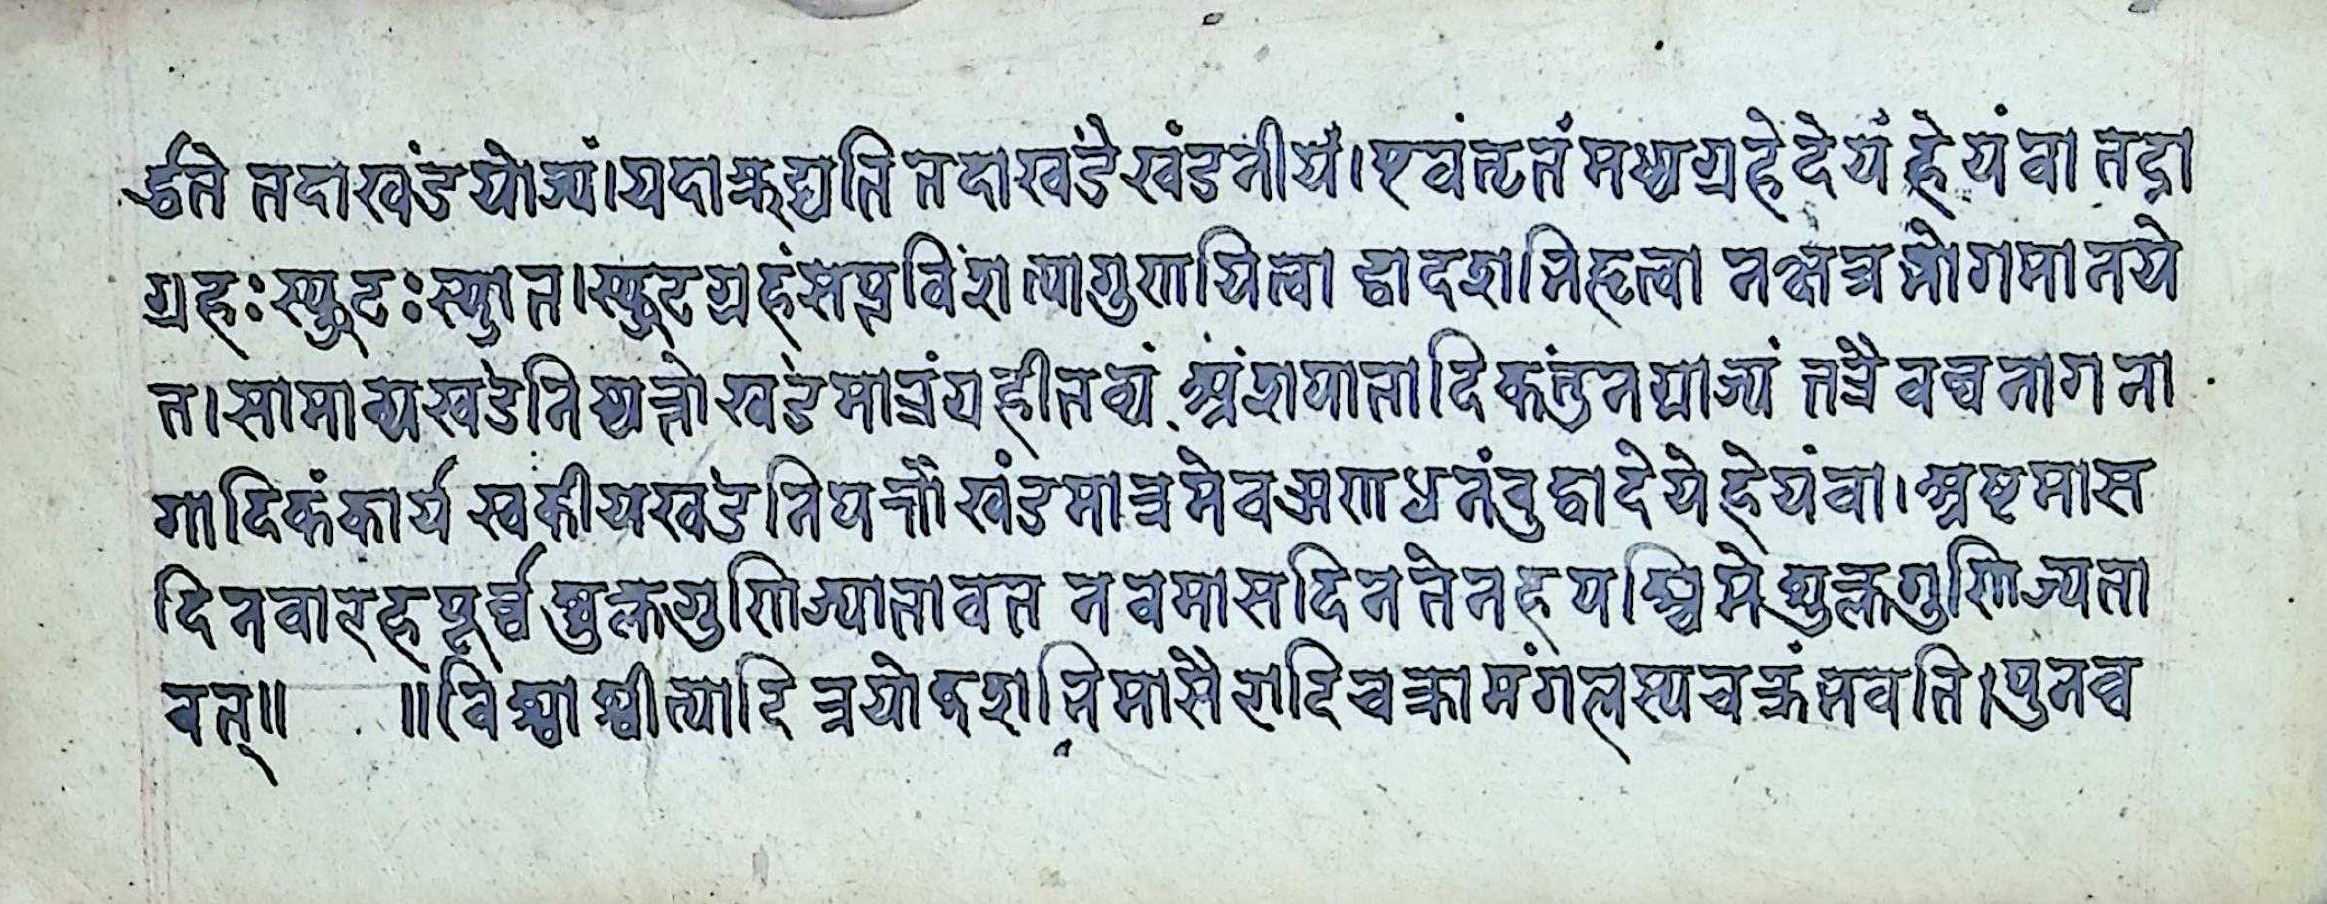 र्द्धते तदा खंड योज्यं। यदा ऋद्यति तदा खंडं खंडनीयं। एवं तत् मध्यग्रहे देयं हेयं वा तदा
ग्रहः स्फुटः स्यात। स्फुटग्रहं सप्तविंशत्या गुणयित्वा द्वादशभि हृत्वा नक्षत्रभोगमानये
त। सामान्यखंडनिष्पन्नो खंडमात्रं ग्रहीतव्यं अंशपातादिकंतु न ग्राज्यं तत्रैव च भागना
गादिकं कार्यं स्वकीयखंडनिपन्नौ खंडमात्रमेव ऋणधनं बुद्वा देयं हेयं वा। अष्टमास
दिनवारह पूर्व्व शुक्ल गुणिज्या तावत नवमासदिन तेनह पश्चिमे शुक्लगुणिज्य ता
वत्॥ ॥विश्वाश्वीत्यादि त्रयोदशभि मासै रादिचक्रा मंगलस्य चक्रं भवति। पुनश्च